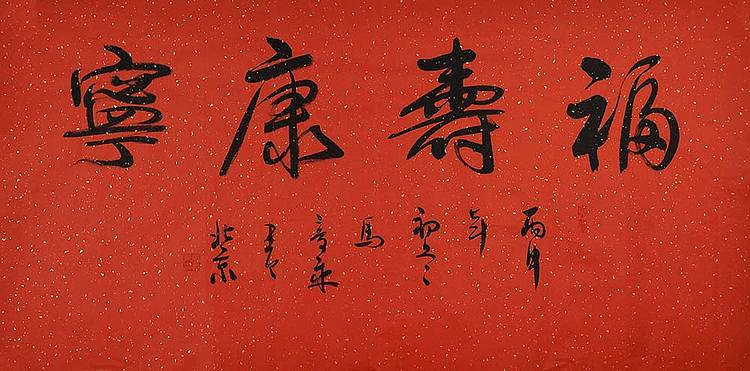 福壽康寧
丙申年初冬馬書於北京